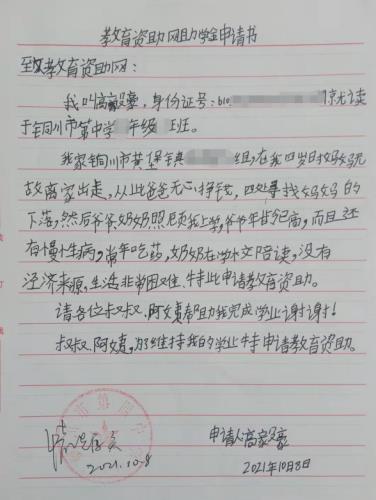 教育资助网助学金申请书
致教育资助网:
我叫高家豪,身份证号:610 就读
于铜川市第 中学 年级 班。
我家铜川市黄堡镇 组,在我四岁时妈妈无
故离家出走,从此爸爸无心挣钱,四处寻找妈妈的
下落,然后爷爷奶奶照顾我上学,爷爷年纪高,而且还
有慢性病,常年吃药,奶奶在学校陪读,没有
经济来源,生活非常困难,特此申请教育资助。
请各位叔叔、阿姨帮助我完成学业谢谢!
叔叔、阿姨,为维持我的学业特申请教育资助。
申请人高家豪
2021.10.8
2021年10月8日